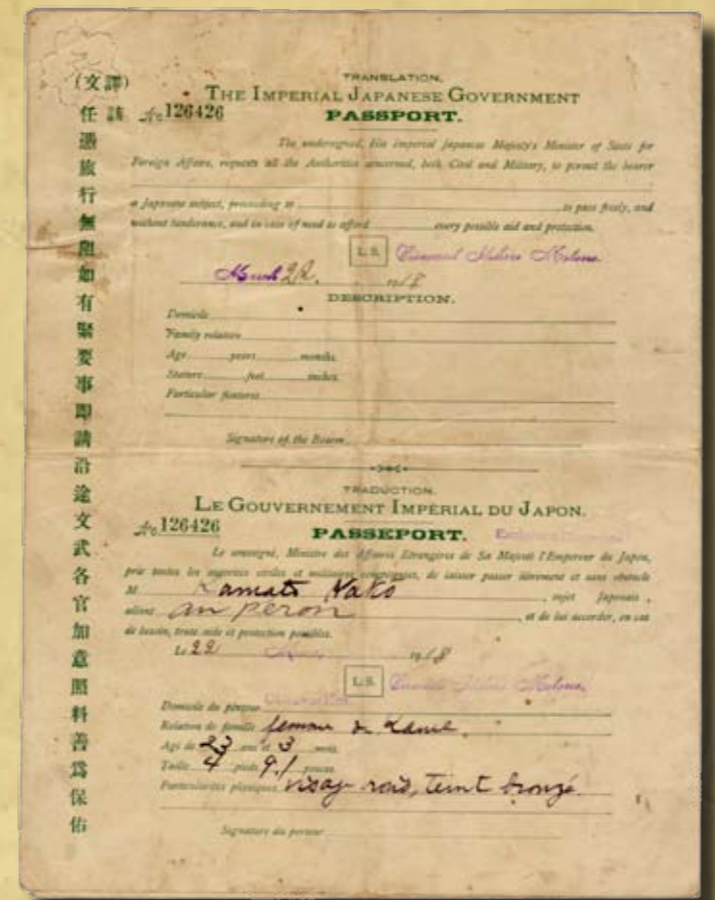 (譯文)
該
任憑旅行無阻如有緊要事即請沿途文武各官加意照料善爲保佑
TRANSLATION.
THE IMPERIAL JAPANESE GOVERNMENT
№ 126426
PASSPORT.
The undersigned, His Imperial Japanese Majesty's Minister of State for
Foreign Affairs, requests all the Authorities concerned, both Civil and Military, to permit the bearer
a Japanese subject, proceeding to to pass freely, and
without hinderance, and in case of need to afford every possible aid and protection.
L.S.
22 1918
DESCRIPTION.
Domicile
Family relation
Age years months.
Stature feet inches.
Particular features
Signature of the Bearer
TRADUCTION.
LE GOUVERNEMENT IMPÉRIAL DU JAPON.
№ 126426
PASSEPORT.
Le soussigné, Ministre des Affaires Etrangères de Sa Majesté l'Empereur du Japon,
prie toutes les autorités civiles et militaires de laisser passer librement et sans obstacle
M Kato , sujet Japonais ,
allant au peron , et de lui accorder, en cas
de besoin, toute aide et protection possibles.
Le 22 1918
L.S.
Domicile du porteur
Relation de famille femme de
Agé de 23 ans et 3 mois
Taille 4 pieds 9.1 pouces
Particularités physiques visage rond, teint bronzé.
Signature du porteur